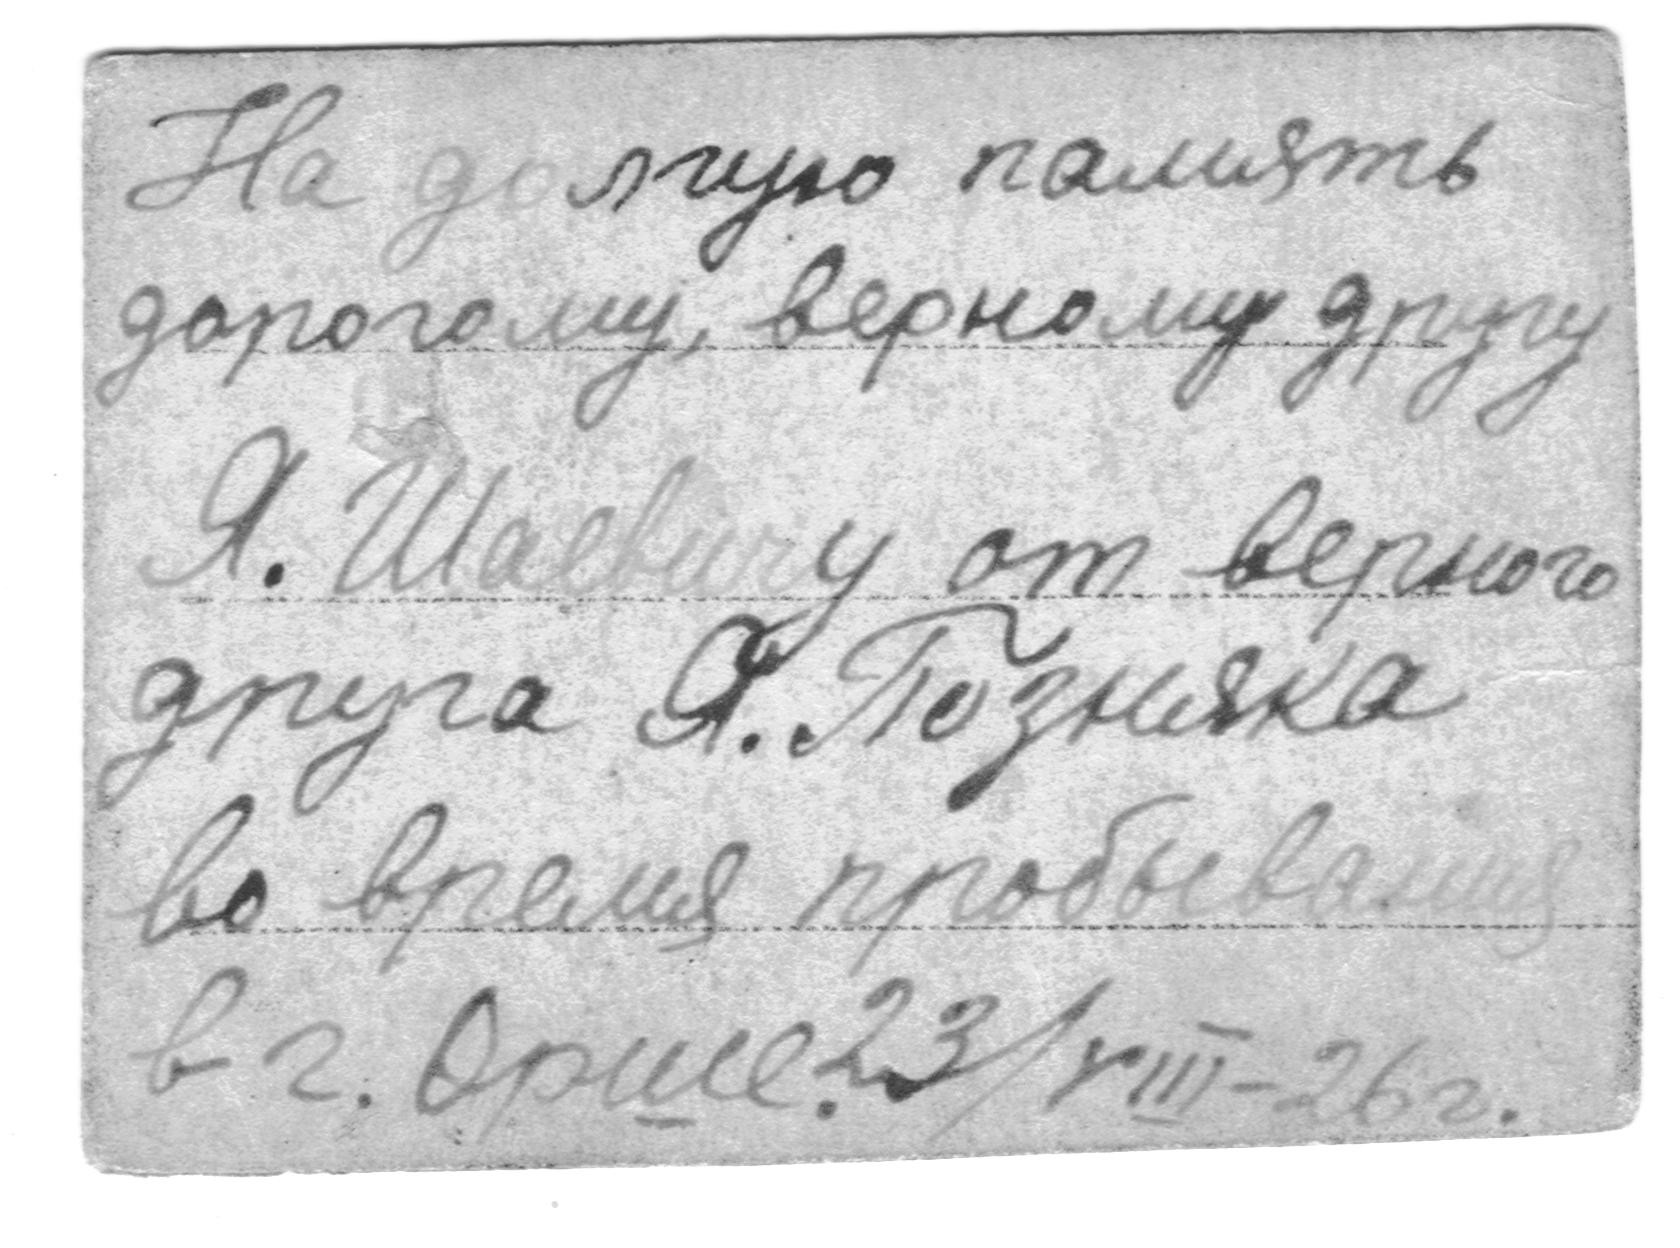 На долгую память
дорогому, верному другу
Я. Шаевичу от верного
друга Я. Позняка
во время пробывания
в г. Орше. 23/VIII-26 г.